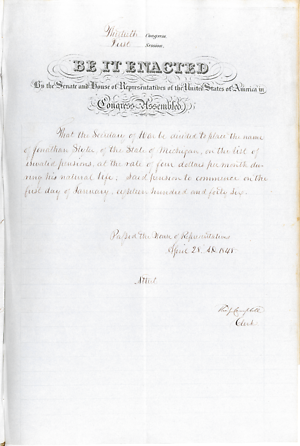 Thirtieth Congress
First Session,
BE IT ENACTED
By the Senate and House of Representatives of the United States of America in
Congress Assembled
That the Secretary of War be directed to place the name
of Jonathan of the State of Michigan, on the list of
invalid pensions, at the rate of four dollars per month du-
ring his natural life; said pension to commence on the
first day of January, eighteen hundred and forty six.
Passed the House of Representatives
April 28. AD 1848.
Attest
Clerk